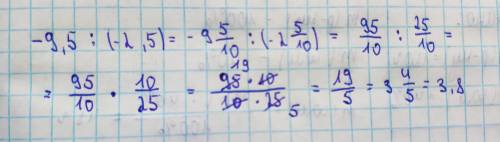 -9,5 : (-2,5) = -9 5/10 : (-2 5/10) = 95/10 : 25/10 =
= 95/10 · 10/25 = 95 19 · 10 / 10 · 25 5 = 19/5 = 3 4/5 = 3,8